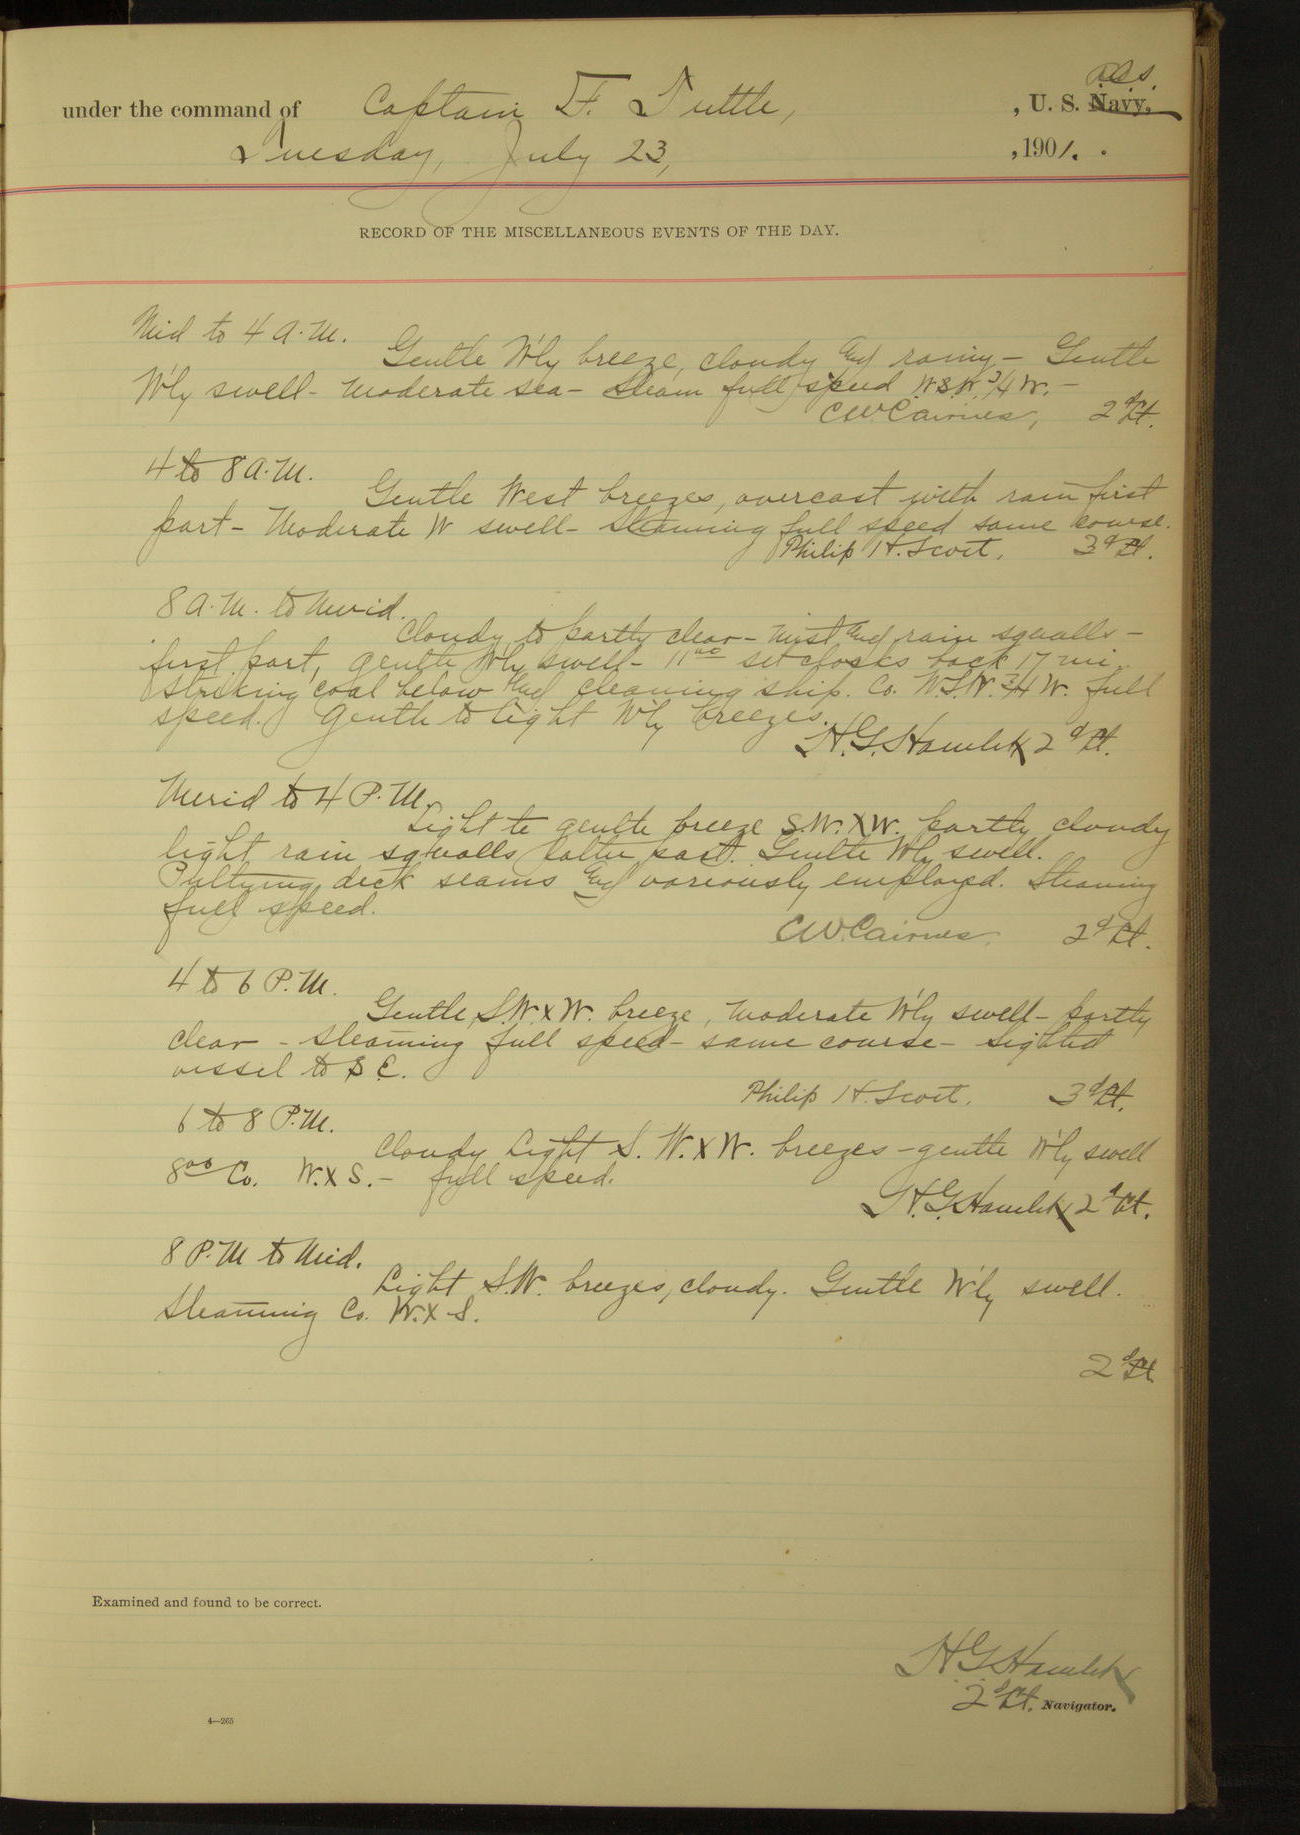 R.C.S.
under the command of Captain F. Tuttle, , U. S. Navy,
Tuesday, July 23, , 1901.
RECORD OF THE MISCELLANEOUS EVENTS OF THE DAY.
Mid to 4 A.M.
Gentle W'ly breeze, cloudy and rainy – Gentle
W'ly swell – moderate sea – Steam full speed W.S.W. 3/4 W. –
C.W. Cairnes, 2d Lt.
4 to 8 A.M.
Gentle West breezes, overcast with rain first
part – Moderate W swell – Steaming full speed same course.
Philip H. Scott. 3d Lt.
8 A.M. to Merid.
Cloudy to partly clear – mist and rain squalls –
first part, gentle W'ly swell – 11 00 set clocks back 17 mi.
Striking coal below and cleaning ship. Co. W.S.W. 3/4 W. full
speed. Gentle to light W'ly breezes.
H.G. Hamlet 2d Lt.
Merid to 4 P.M.
Light to gentle breeze S.W.XW. partly cloudy
light rain squalls latter part. Gentle W'ly swell.
Puttying deck seams and variously employed. Steaming
full speed.
C.W. Cairnes. 2d Lt.
4 to 6 P.M.
Gentle S.W.XW. breeze, moderate W'ly swell – partly
clear – steaming full speed – same course – sighted
vessel to S E.
Philip H. Scott. 3d Lt.
6 to 8 P.M.
Cloudy light S.W.XW. breezes – gentle W'ly swell
8 00 Co. W.X S. – full speed.
H.G. Hamlet 2d Lt.
8 P.M to Mid.
Light S.W. breezes, cloudy. Gentle W'ly swell.
Steaming Co. W.X S.
2d Lt
Examined and found to be correct.
H G Hamlet
2d Lt. Navigator.
4—265